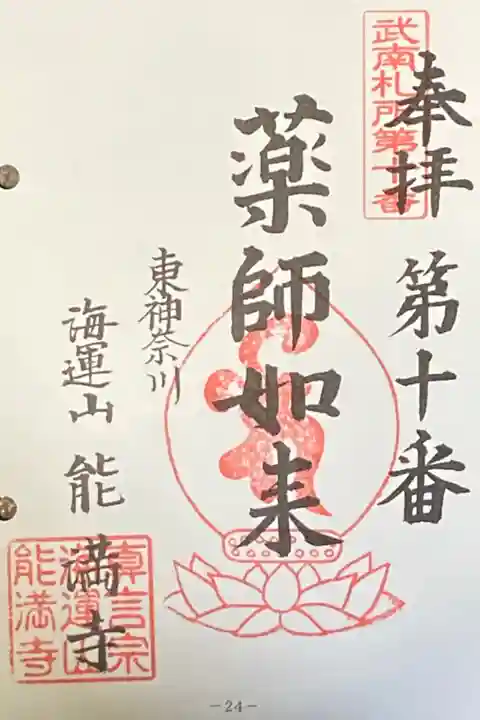 武南札所第十番
奉拝 第十番
薬師如来
東神奈川
海運山 能満寺
真言宗
海運山
能満寺
-24-